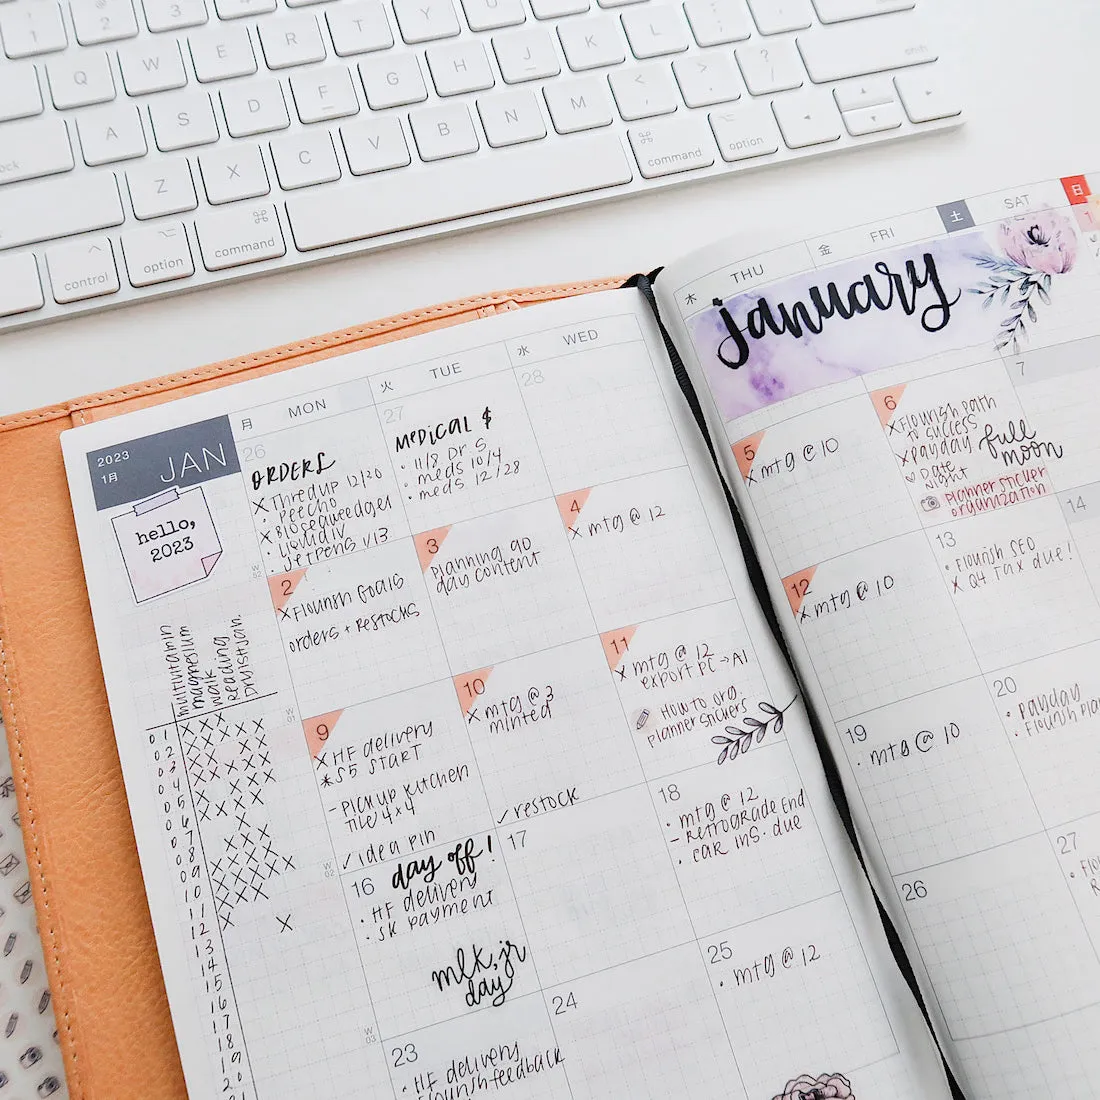 1 2 T Y U
Q W E R G H J K L
A S D F B N M < , > . ? /
Z X C V command ⌘ option
control option command ⌘ shift
木 THU 金 FRI 土 SAT 日
january
1
月 MON 火 TUE 水 WED
2023
1月
JAN
hello,
2023
26
ORDERS
X Thredup 12/20
• peecho
X Bloseaweedgel
• Liquid IV
• Jetpens 1/13
27
MEDICAL $
• 11/8 Dr. S
• meds 10/4
• meds 12/28
28
W 52
2
X Flourish Goals
orders + restocks
3
planning 90
day content
4
X mtg @ 12
5
X mtg @ 10
6
X Flourish Path
to success
X payday
♡ Date
Night
full
moon
planner sticker
organization
7
multivitamin
magnesium
walk
reading
01
02
03
04
05
06
07
08
09
10
11
12
13
14
15
16
17
18
19
20
21
W 01
9
X HF delivery
* S5 START
- pick up kitchen
tile/4x4
✓ idea pin
10
X mtg @ 3
minted
✓ restock
11
X mtg @ 12
export PC → AI
How to org
planner stickers
12
X mtg @ 10
13
• Flourish SEO
X Q4 Tax due!
14
W 02
16
day off!
• HF delivery
• SK payment
mlk, jr
day
17
18
• mtg @ 12
- Retrograde End
• car ins. due
19
• mtg @ 10
20
• payday
W 03
23
• HF delivery
flourish feedback
24
25
• mtg @ 12
26
27